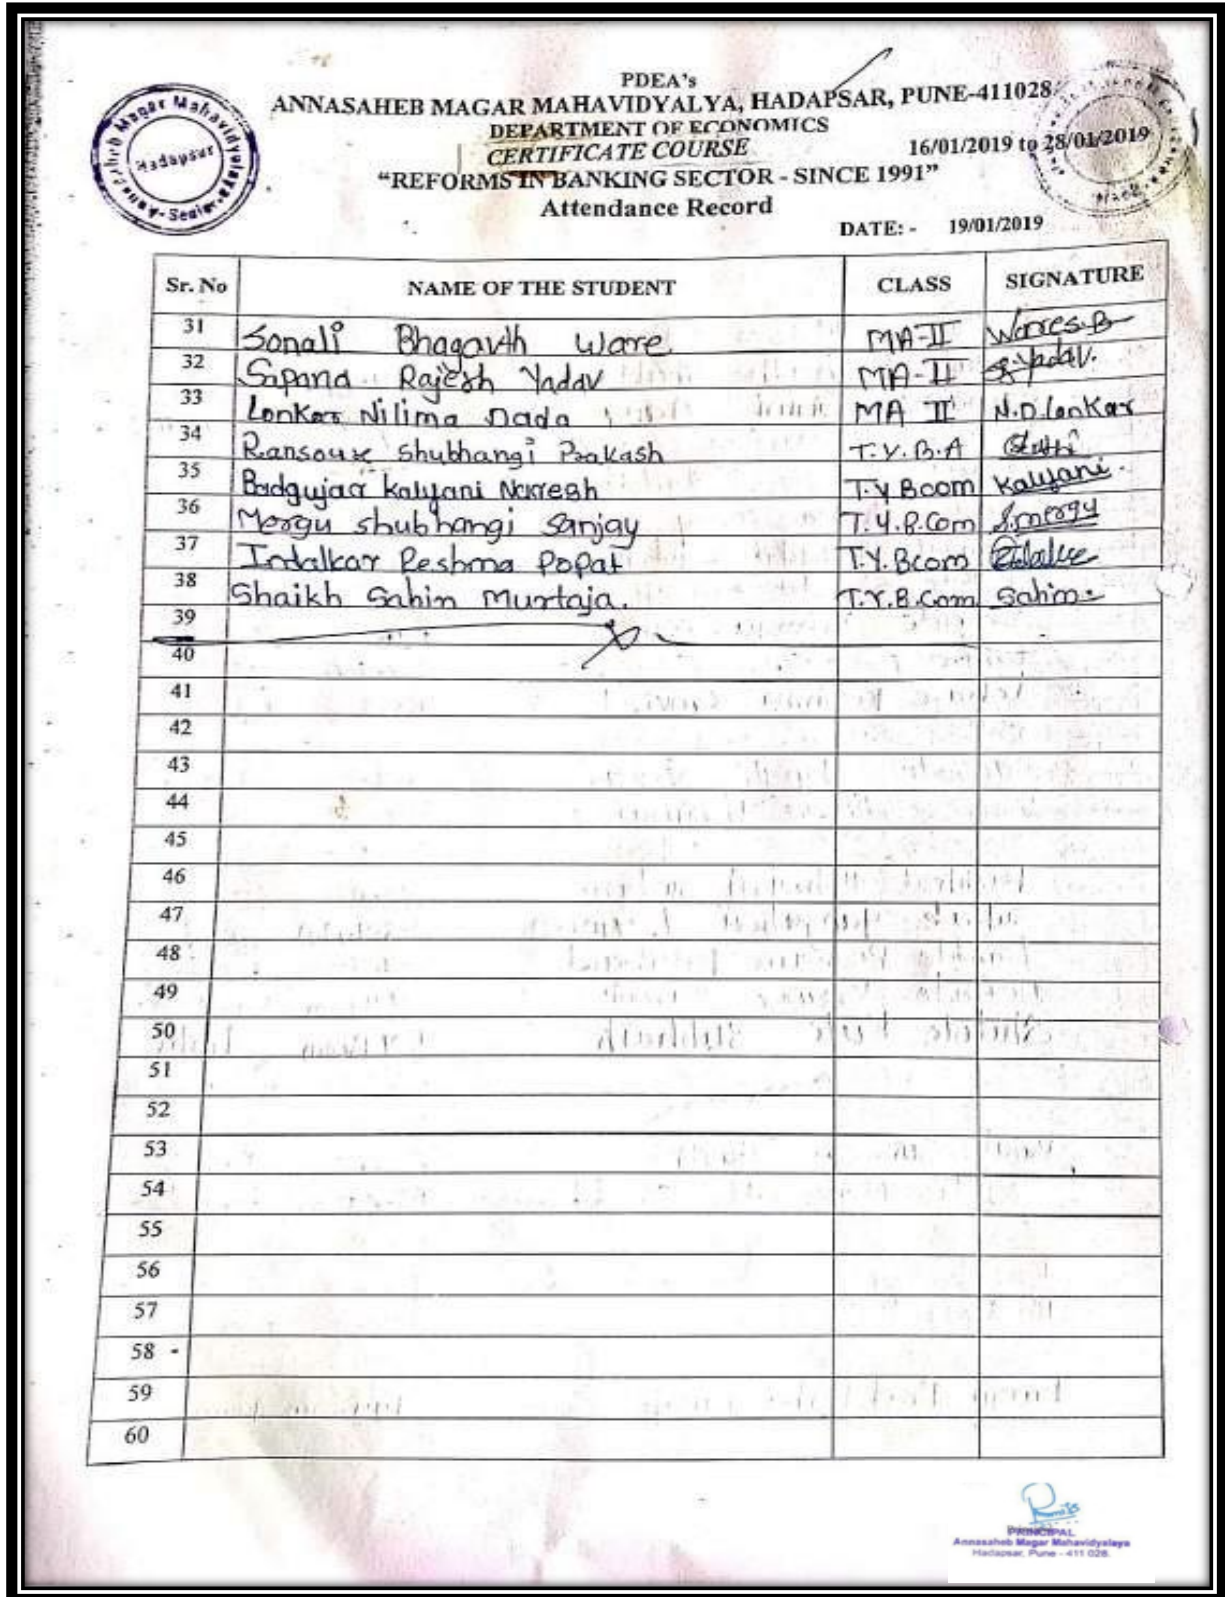 PDEA's
ANNASAHEB MAGAR MAHAVIDYALYA, HADAPSAR, PUNE-411028
DEPARTMENT OF ECONOMICS
CERTIFICATE COURSE 16/01/2019 to 28/01/2019
"REFORMS IN BANKING SECTOR - SINCE 1991"
Attendance Record
DATE: - 19/01/2019
Hadapsar
Sr. No NAME OF THE STUDENT CLASS SIGNATURE
31 Sonali Bhagavth Ware MA-II
32 Sapana Rajesh Yadav MA-II S.Yadav.
33 Lonkar Nilima Dada MA II N.D.Lonkar
34 Ransoure Shubhangi Prakash T.Y.B.A
35 Badgujaar Kalyani Narresh T.Y Bcom Kalyani.
36 Mergu Shubhangi Sanjay T.Y.B.Com S.mergu
37 Indalkar Reshma Popat T.Y.Bcom
38 Shaikh Sahin Murtaja. T.Y.B.Com Sahin
39
40
41
42
43
44
45
46
47
48
49
50
51
52
53
54
55
56
57
58 -
59
60
PRINCIPAL
Annasaheb Magar Mahavidyalaya
Hadapsar, Pune - 411 028.